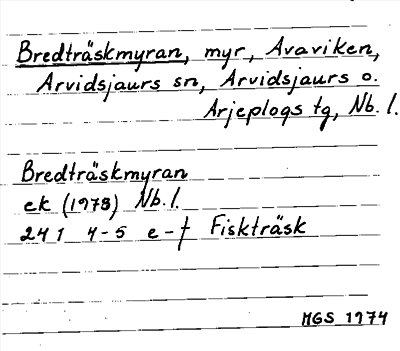 Bredträskmyran, myr, Avaviken,
Arvidsjaurs sn, Arvidsjaurs o.
Arjeplogs tg, Nb. l.
Bredträskmyran
ek (1978) Nb. l.
24 I 4-5 e-f Fiskträsk
MGS 1974